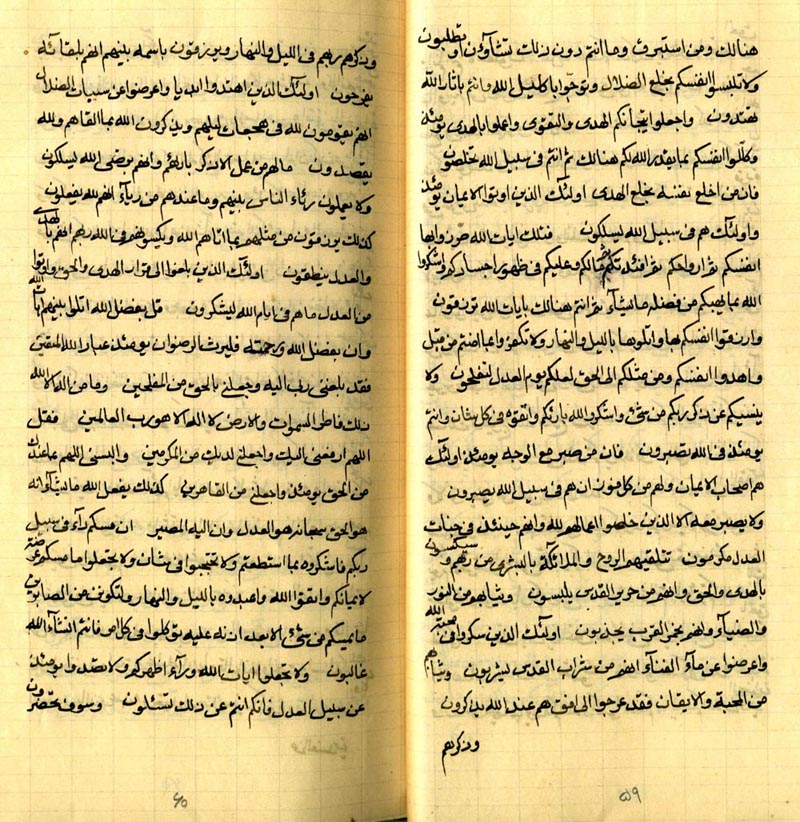 هنالك ومن استبرق وما انتم دون ذلك تشاؤن او تطلبون
ولا تلبسوا انفسكم بخلع الضلال وتوجّوا باكليل الله وانتم باثار الله
تهتدون واجعلوا تيجانكم الهدى والتقوى واعملوا بالهدى يومئذ
وكللوا انفسكم بما يقدر الله لكم هنالك ثم انتم في سبيل الله تخلصون
فان من اخلع نفسه بخلع الهدى اولئك الذين اوتوا الايمان يومئذ
واولئك هم في سبيل الله يسلكون فتلك ايات الله صوروا بها
انفسكم ثم ارواحكم ثم افئدتكم وعليكم في ظهور اجسادكم واشكروا
الله بما يهبكم من فضله ما يشآء ثم انتم هنالك بايات الله ترزقون
وارزقوا انفسكم بها واتلوها بالليل والنهار ولا تكفروا بما امنتم من قبل
واهدوا انفسكم ومن مثلكم الى الحق لعلكم يوم العدل لتفلحون ولا
ينسيكم عن ذكر ربكم من شيء واشكروا الله بارئكم واتقوه في كل شان وانتم
يومئذ في الله تصبرون فان من صبر مع الوجه يومئذ اولئك
هم اصحاب الايمان ولهم من كل ان هم في سبيل الله يصبرون
ولا يصبر معه الا الذين خلصوا اعمالهم لله وانهم حينئذ في جنات
العدل مكرمون تتلقيهم الروح والملائكة بالبشرى من ربهم و
بالهدى والحق وانهم من حرير القدس يلبسون وثيابهم من النور
والضيآء ولهم بخر القرب يجذبون اولئك الذين سكروا في الله
واعرضوا عن مآء الفنآء انهم من شراب القدس ليشربون وثيابهم
من المحبة والايقان فقد عرجوا الى افق هم عند الله يذكرون
وذكرهم
٥٩
وذكرهم ربهم في الليل والنهار ويرزقون باسمه بينهم انهم بلقائه
يفرحون اولئك الذين اهتدوا واعرضوا عن سبيات الضلال
انهم يقومون لله في هجعات ليلهم ويذكرون الله بما القاهم ولله
يقصدون ما لهم من عمل الا ذكر بارئهم وانهم برضى الله يسلكون
ولا يعملون رئاء الناس بينهم وما عندهم من ريآء انهم لله يفعلون
كذلك يرزقون من مثلهم بما اتاهم الله ويكسونهم في الله ربهم انهم بالهدى
والعدل ينطقون اولئك الذين بلغوا الى قرار الهدى والحق واوتوا
من العدل ما هم في ايام الله ليشكرون قل بفضل الله اتلوا بينهم ايات الله
وان بفضل الله ورحمته فليرث الرضوان يومئذ عباد الله المتقين
فقد بلغني ربي اليه وجعلني بالحق من المفلحين وما من اله الا الله
ذلك فاطر السموات والارض لا اله الا هو رب العالمين فقل
اللهم ارفعني اليك واجعلني لديك من المكرمين والبسني اللهم ما عندك
من الحق يومئذ واجعلني من القاهرين كذلك يفعل الله ما يشآء وانه
هو الحق سبحانه هو العدل وان اليه المصير ان مسكم دآء في سبيل
ربكم فاشكروه بما استطعتم ولا تحتجبوا في شان ولا تجعلوا ما مسكم
لايمانكم واتقوا الله واعبدوه بالليل والنهار ولتكونن من الصابرين
ما يمسكم من شيء الا بعد اذنه عليه توكلوا في كل امر فانتم انشآء الله
غالبون ولا تجعلوا ايات الله ورآء اظهركم ولا تصدوا يومئذ
عن سبيل العدل فانكم انتم عن ذلك تسئلون وسوف تحضرون
٦٠